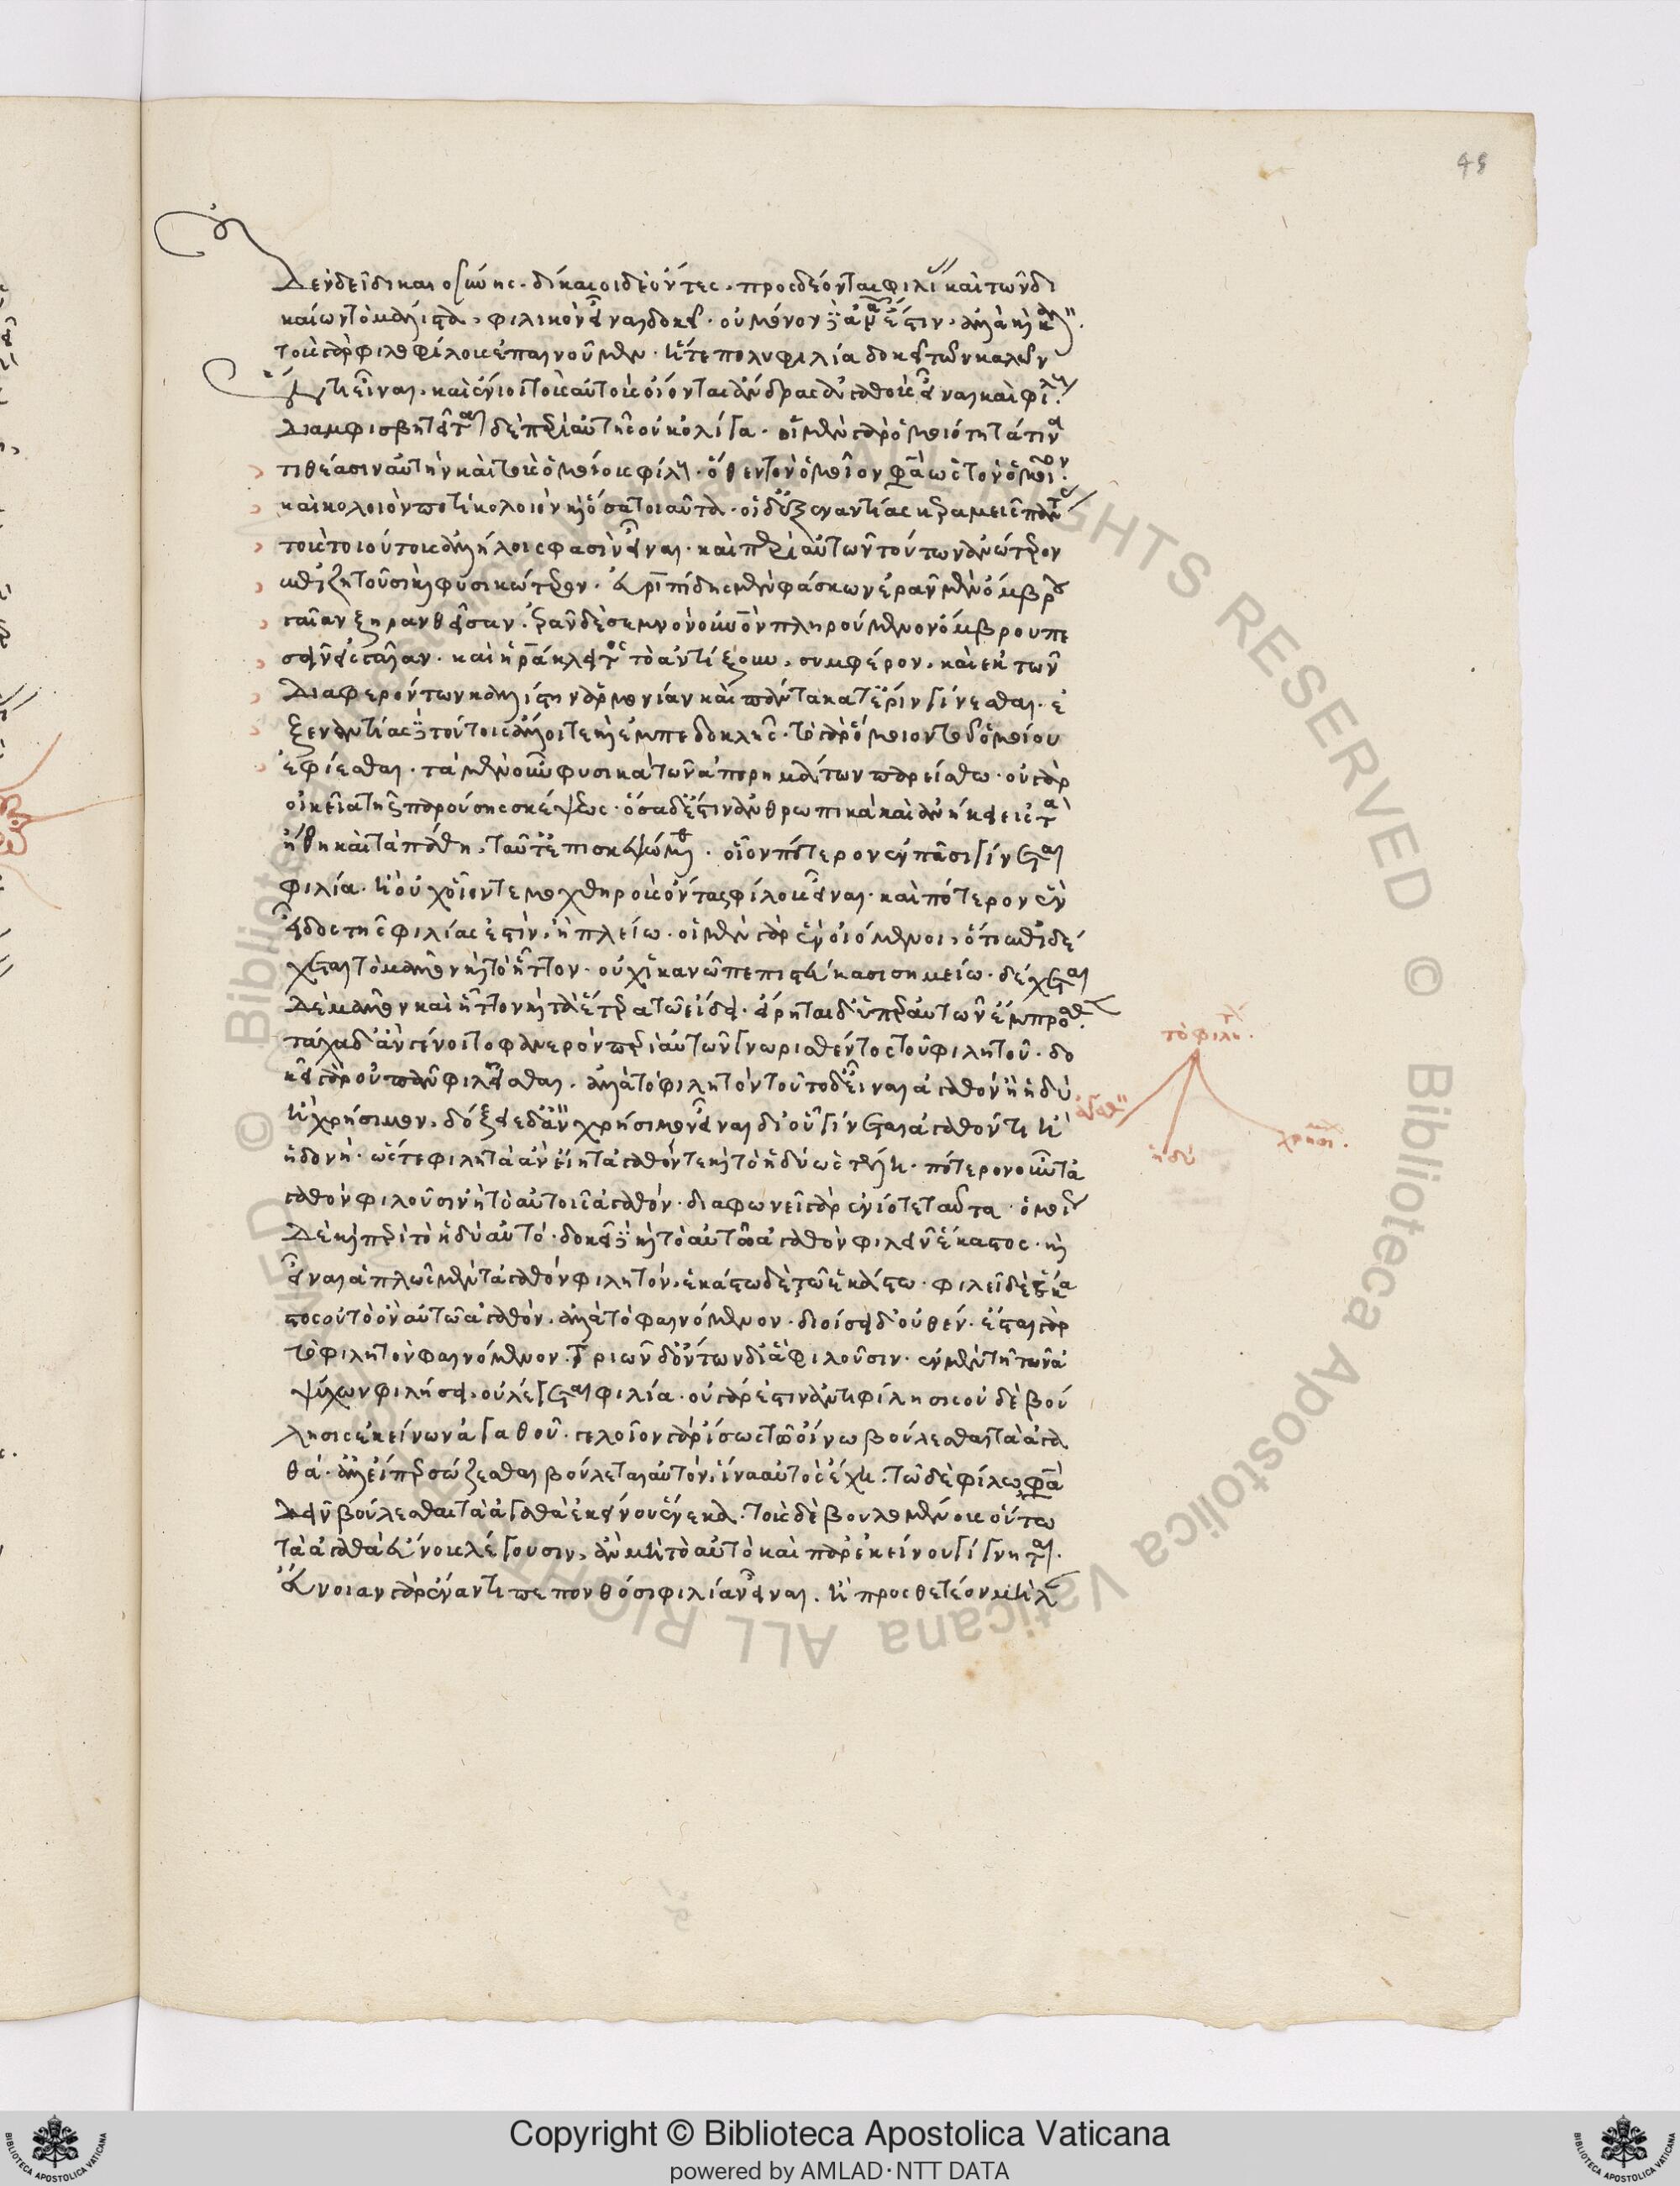 δὲν δεῖ δικαιοσύνης· δίκαιοι δὲ ὄντες, προσδέονται φιλίας· καὶ τῶν δι
καίων τὸ μάλιστα, φιλικὸν εἶναι δοκεῖ· οὐ μόνον δ' ἀναγκαῖόν ἐστιν, ἀλλὰ καὶ καλόν·
τοὺς γὰρ φιλοφίλους ἐπαινοῦμεν· ἥ τε πολυφιλία δοκεῖ τῶν καλῶν
ἕν τι εἶναι, καὶ ἔνιοι τοὺς αὐτοὺς οἴονται ἄνδρας ἀγαθοὺς εἶναι καὶ φίλους·
διαμφισβητεῖται δὲ περὶ αὐτῆς οὐκ ὀλίγα· οἱ μὲν γὰρ ὁμοιότητά τινα
τιθέασιν αὐτὴν καὶ τοὺς ὁμοίους φίλους· ὅθεν τὸν ὅμοιόν φασιν ὡς τὸν ὅμοιον·
καὶ κολοιὸν ποτὶ κολοιὸν καὶ ὅσα τοιαῦτα· οἱ δ' ἐξ ἐναντίας κεραμεῖς πάντας
τοὺς τοιούτους ἀλλήλοις φασὶν εἶναι· καὶ περὶ αὐτῶν τούτων ἀνώτερον
ἐπιζητοῦσι καὶ φυσικώτερον· εὐριπίδης μὲν φάσκων ἐρᾶν μὲν ὄμβρου
γαῖαν ξηρανθεῖσαν· ἐρᾶν δὲ σεμνὸν οὐρανὸν πληρούμενον ὄμβρου πε
σεῖν εἰς γαῖαν· καὶ ἡράκλειτος τὸ ἀντίξουν, συμφέρον, καὶ ἐκ τῶν
διαφερόντων καλλίστην ἁρμονίαν καὶ πάντα κατ' ἔριν γίνεσθαι· ἐ
ξεναντίας δὲ τούτοις ἄλλοι τε καὶ ἐμπεδοκλῆς· τὸ γὰρ ὅμοιον τοῦ ὁμοίου
ἐφίεσθαι· τὰ μὲν οὖν φυσικὰ τῶν ἀπορημάτων παρείσθω· οὐ γὰρ
οἰκεῖα τῆς παρούσης σκέψεως· ὅσα δ' ἐστὶν ἀνθρωπικὰ καὶ ἀνήκει εἰς τὰ
ἤθη καὶ τὰ πάθη, ταῦτ' ἐπισκεψώμεθα· οἷον πότερον ἐν πᾶσι γίνεται
φιλία· ἢ οὐχ οἷόν τε μοχθηροὺς ὄντας φίλους εἶναι· καὶ πότερον ἓν
εἶδος τῆς φιλίας ἐστὶν, ἢ πλείω· οἱ μὲν γὰρ ἓν οἰόμενοι, ὅτι ἐπιδέ
χεται τὸ μᾶλλον καὶ τὸ ἧττον· οὐχ ἱκανῶ πεπιστεύκασι σημείω· δέχεται
δὲ μᾶλλον καὶ ἧττον καὶ τὰ ἕτερα τῶ εἴδει· εἴρηται δ' ὑπὲρ αὐτῶν ἔμπροσθεν·
τάχα δ' ἂν γένοιτο φανερὸν περὶ αὐτῶν γνωρισθέντος τοῦ φιλητοῦ· δο
κεῖ γὰρ οὐ πᾶν φιλεῖσθαι, ἀλλὰ τὸ φιλητὸν τοῦτο δ' εἶναι ἀγαθὸν ἢ ἡδὺ
ἢ χρήσιμον, δόξειε δ' ἂν χρήσιμον εἶναι δι' οὗ γίνεται ἀγαθόν τι ἢ
ἡδονὴ· ὥστε φιλητὰ ἂν εἴη τἀγαθόν τε καὶ τὸ ἡδὺ ὡς τέλη· πότερον οὖν τἀ
γαθὸν φιλοῦσιν ἢ τὸ αὑτοῖς ἀγαθόν· διαφωνεῖ γὰρ ἐνίοτε ταῦτα· ὁμοίως
δὲ καὶ περὶ τὸ ἡδὺ αὐτό· δοκεῖ δὲ καὶ τὸ αὑτῶ ἀγαθὸν φιλεῖν ἕκαστος· καὶ
εἶναι ἁπλῶς μὲν τἀγαθὸν φιλητόν, ἑκάστω δὲ τῶ ἑκάστω· φιλεῖ δὲ ἕκα
στος οὐ τὸ ὂν αὑτῶ ἀγαθόν, ἀλλὰ τὸ φαινόμενον· διοίσει δ' οὐθέν· ἔσται γὰρ
τὸ φιλητὸν φαινόμενον· τριῶν δ' ὄντων δι' ἃ φιλοῦσιν· ἐν μὲν τῆ τῶν ἀ
ψύχων φιλήσει, οὐ λέγεται φιλία· οὐ γάρ ἐστιν ἀντιφίλησις οὐδὲ βού
λησις ἐκείνων ἀγαθοῦ· γελοῖον γὰρ ἴσως τῶ οἴνω βούλεσθαι τὰ ἀγα
θά· ἀλλ' εἴπερ σώζεσθαι βούλεται αὐτόν, ἵνα αὐτὸς ἔχη· τῶ δὲ φίλω φασὶ
δεῖν βούλεσθαι τὰ ἀγαθὰ ἐκείνου ἕνεκα· τοὺς δὲ βουλομένους οὕτω
τὰ ἀγαθὰ εὔνους λέγουσιν, ἂν μὴ τὸ αὐτὸ καὶ παρ' ἐκείνου γίγνηται·
εὔνοιαν γὰρ ἐν ἀντιπεπονθόσι φιλίαν εἶναι· ἢ προσθετέον μὴ λ
τὸ φιλη.
ἀγαθὸν
ἡδὺ
χρήσι.
Copyright © Biblioteca Apostolica Vaticana
powered by AMLAD·NTT DATA